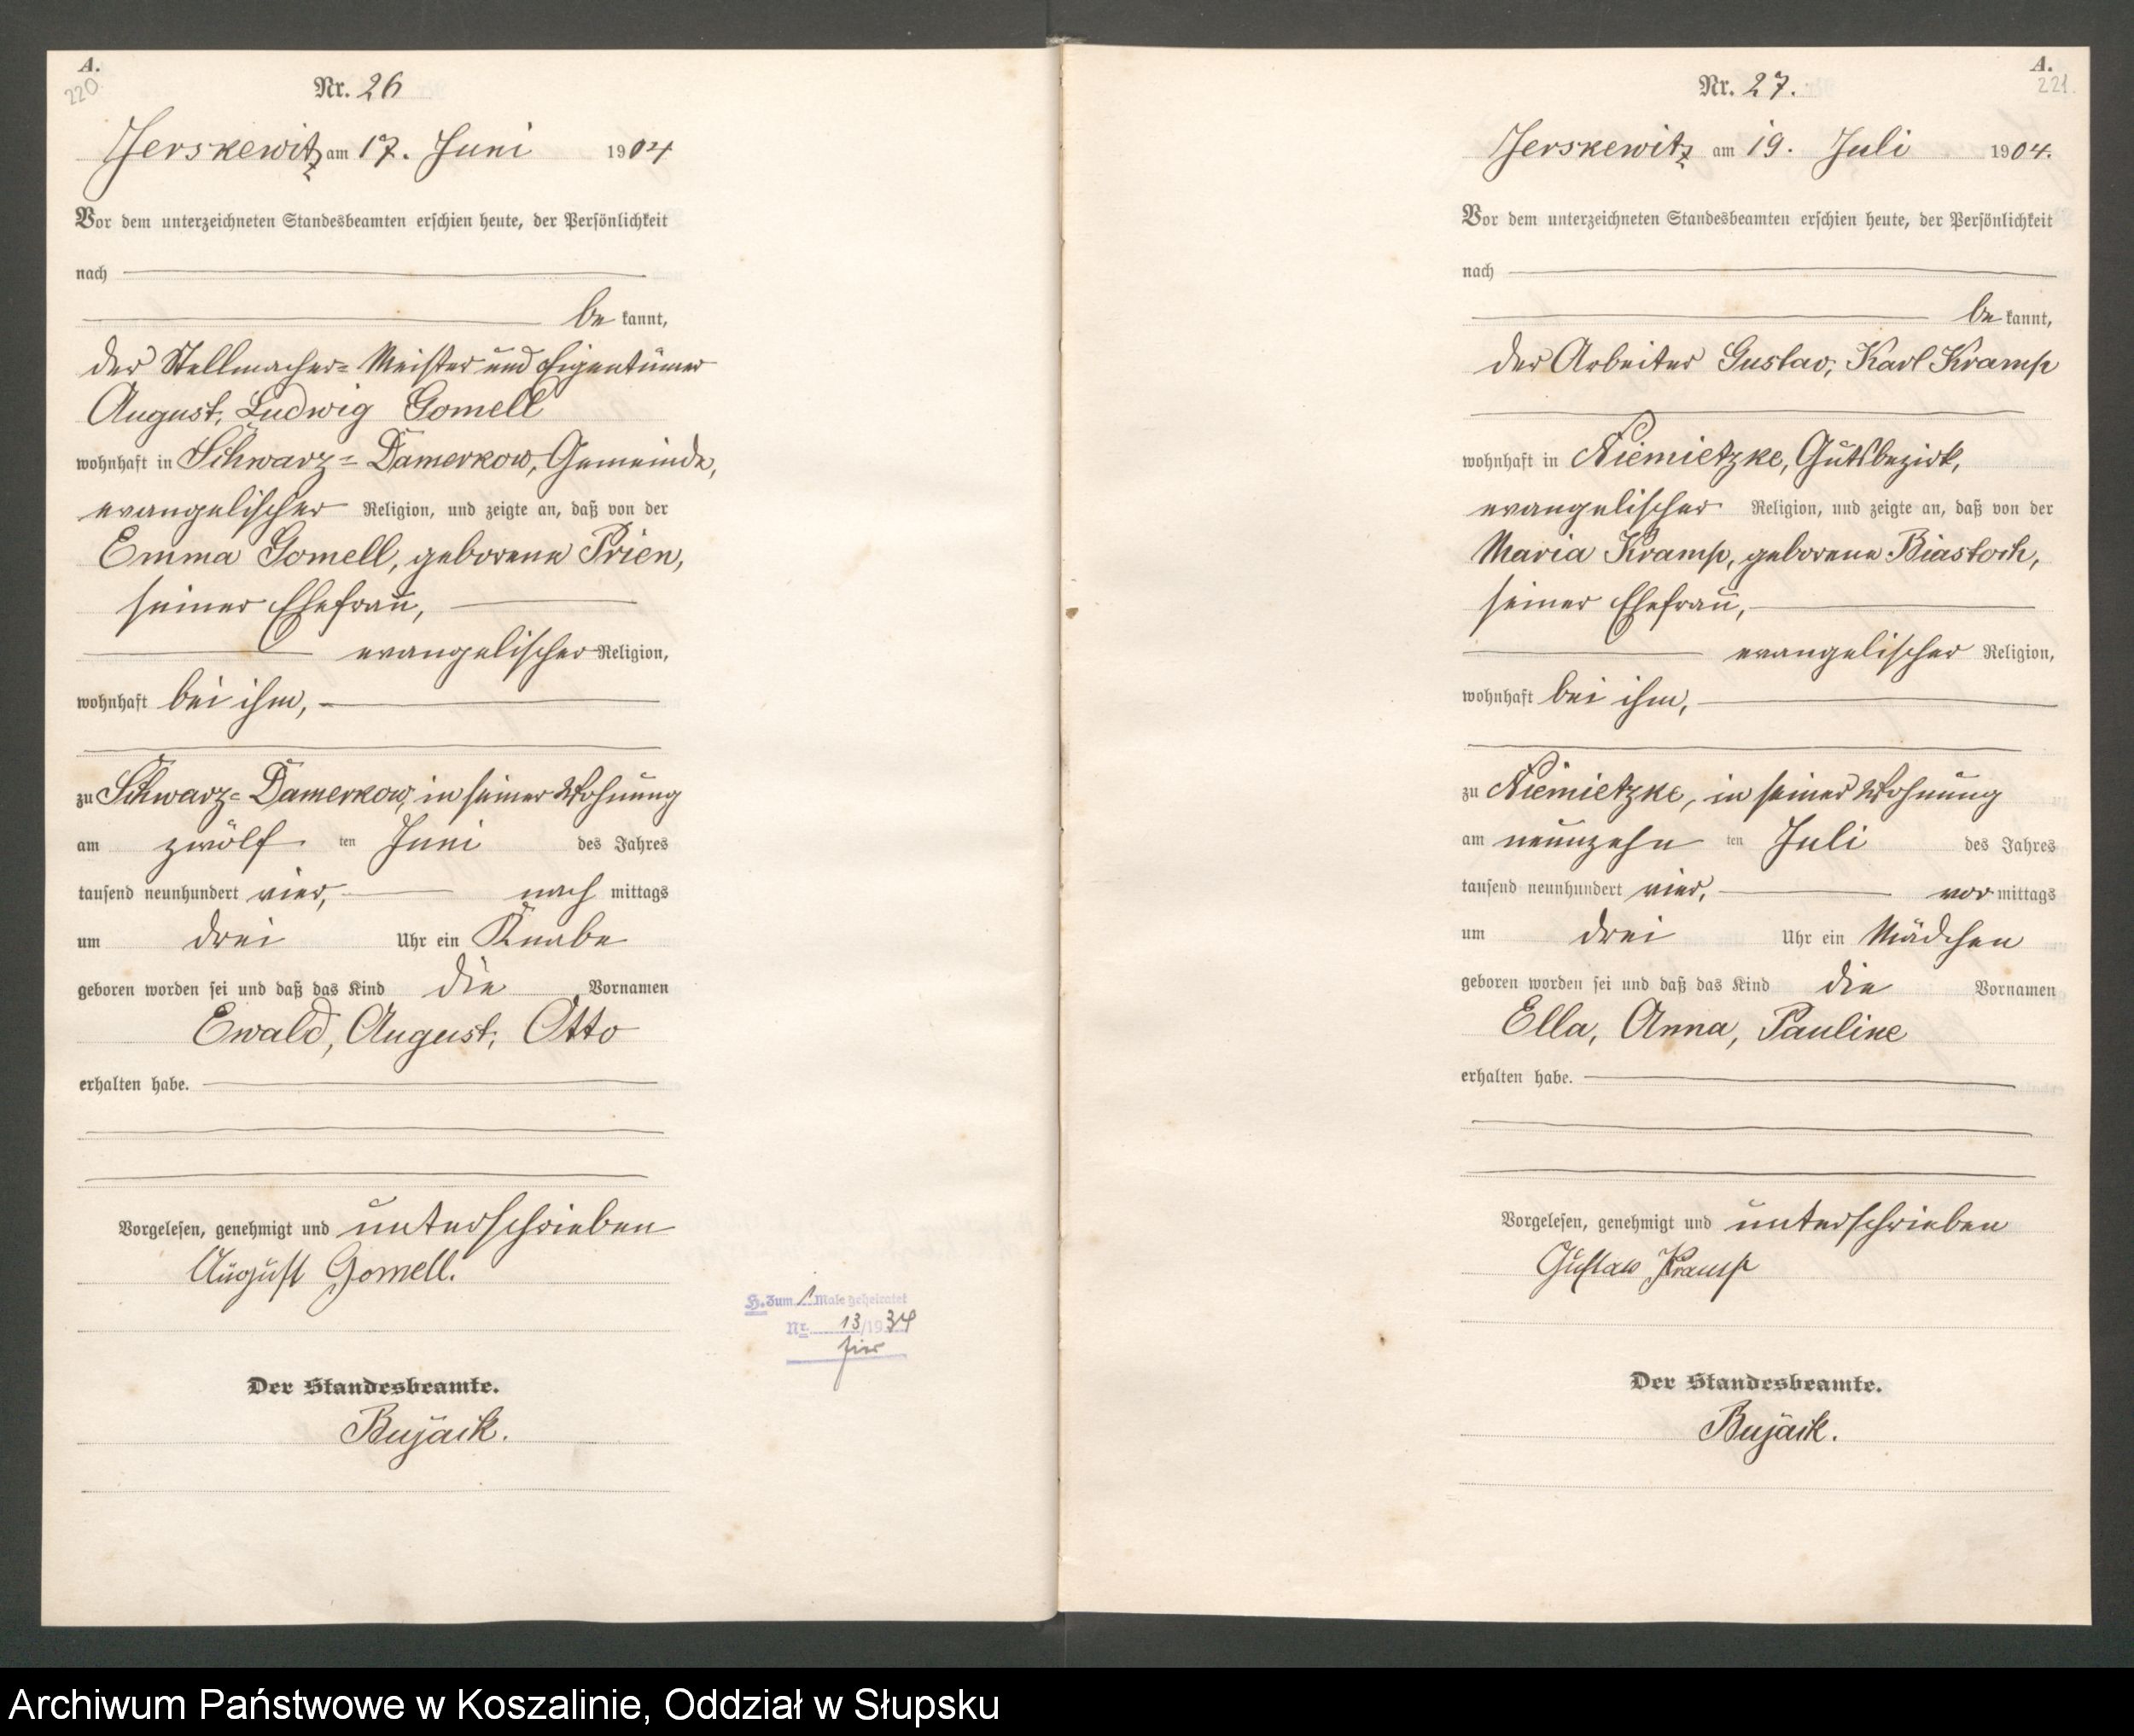 A.
220
Nr. 26
Jerskewitz am 17. Juni 1904
Vor dem unterzeichneten Standesbeamten erschien heute, der Persönlichkeit
nach
be kannt,
der Stellmacher= Meister und Eigentümer
August, Ludwig Gomell
wohnhaft in Schwarz= Damerkow, Gemeinde,
evangelischer Religion, und zeigte an, daß von der
Emma Gomell, geborene Prien,
seiner Ehefrau,
evangelischer Religion,
wohnhaft bei ihm,
zu Schwarz= Damerkow, in seiner Wohnung
am zwölf ten Juni des Jahres
tausend neunhundert vier, nach mittags
um drei Uhr ein Knabe
geboren worden sei und daß das Kind die Vornamen
Ewald, August, Otto
erhalten habe.
Vorgelesen, genehmigt und unterschrieben
August Gomell.
H. Zum 1 Male geheiratet
Nr. 13/1934
hier
Der Standesbeamte.
Bujack.
A.
221.
Nr. 27.
Jerskewitz am 19. Juli 1904.
Vor dem unterzeichneten Standesbeamten erschien heute, der Persönlichkeit
nach
be kannt,
der Arbeiter Gustav, Karl Kramp
wohnhaft in Niemietzke, Gutsbezirk,
evangelischer Religion, und zeigte an, daß von der
Maria Kramp, geborene Biastoch,
seiner Ehefrau,
evangelischer Religion,
wohnhaft bei ihm,
zu Niemietzke, in seiner Wohnung
am neunzehn ten Juli des Jahres
tausend neunhundert vier, vor mittags
um drei Uhr ein Mädchen
geboren worden sei und daß das Kind die Vornamen
Ella, Anna, Pauline
erhalten habe.
Vorgelesen, genehmigt und unterschrieben
Gustav Kramp
Der Standesbeamte.
Bujack.
Archiwum Państwowe w Koszalinie, Oddział w Słupsku